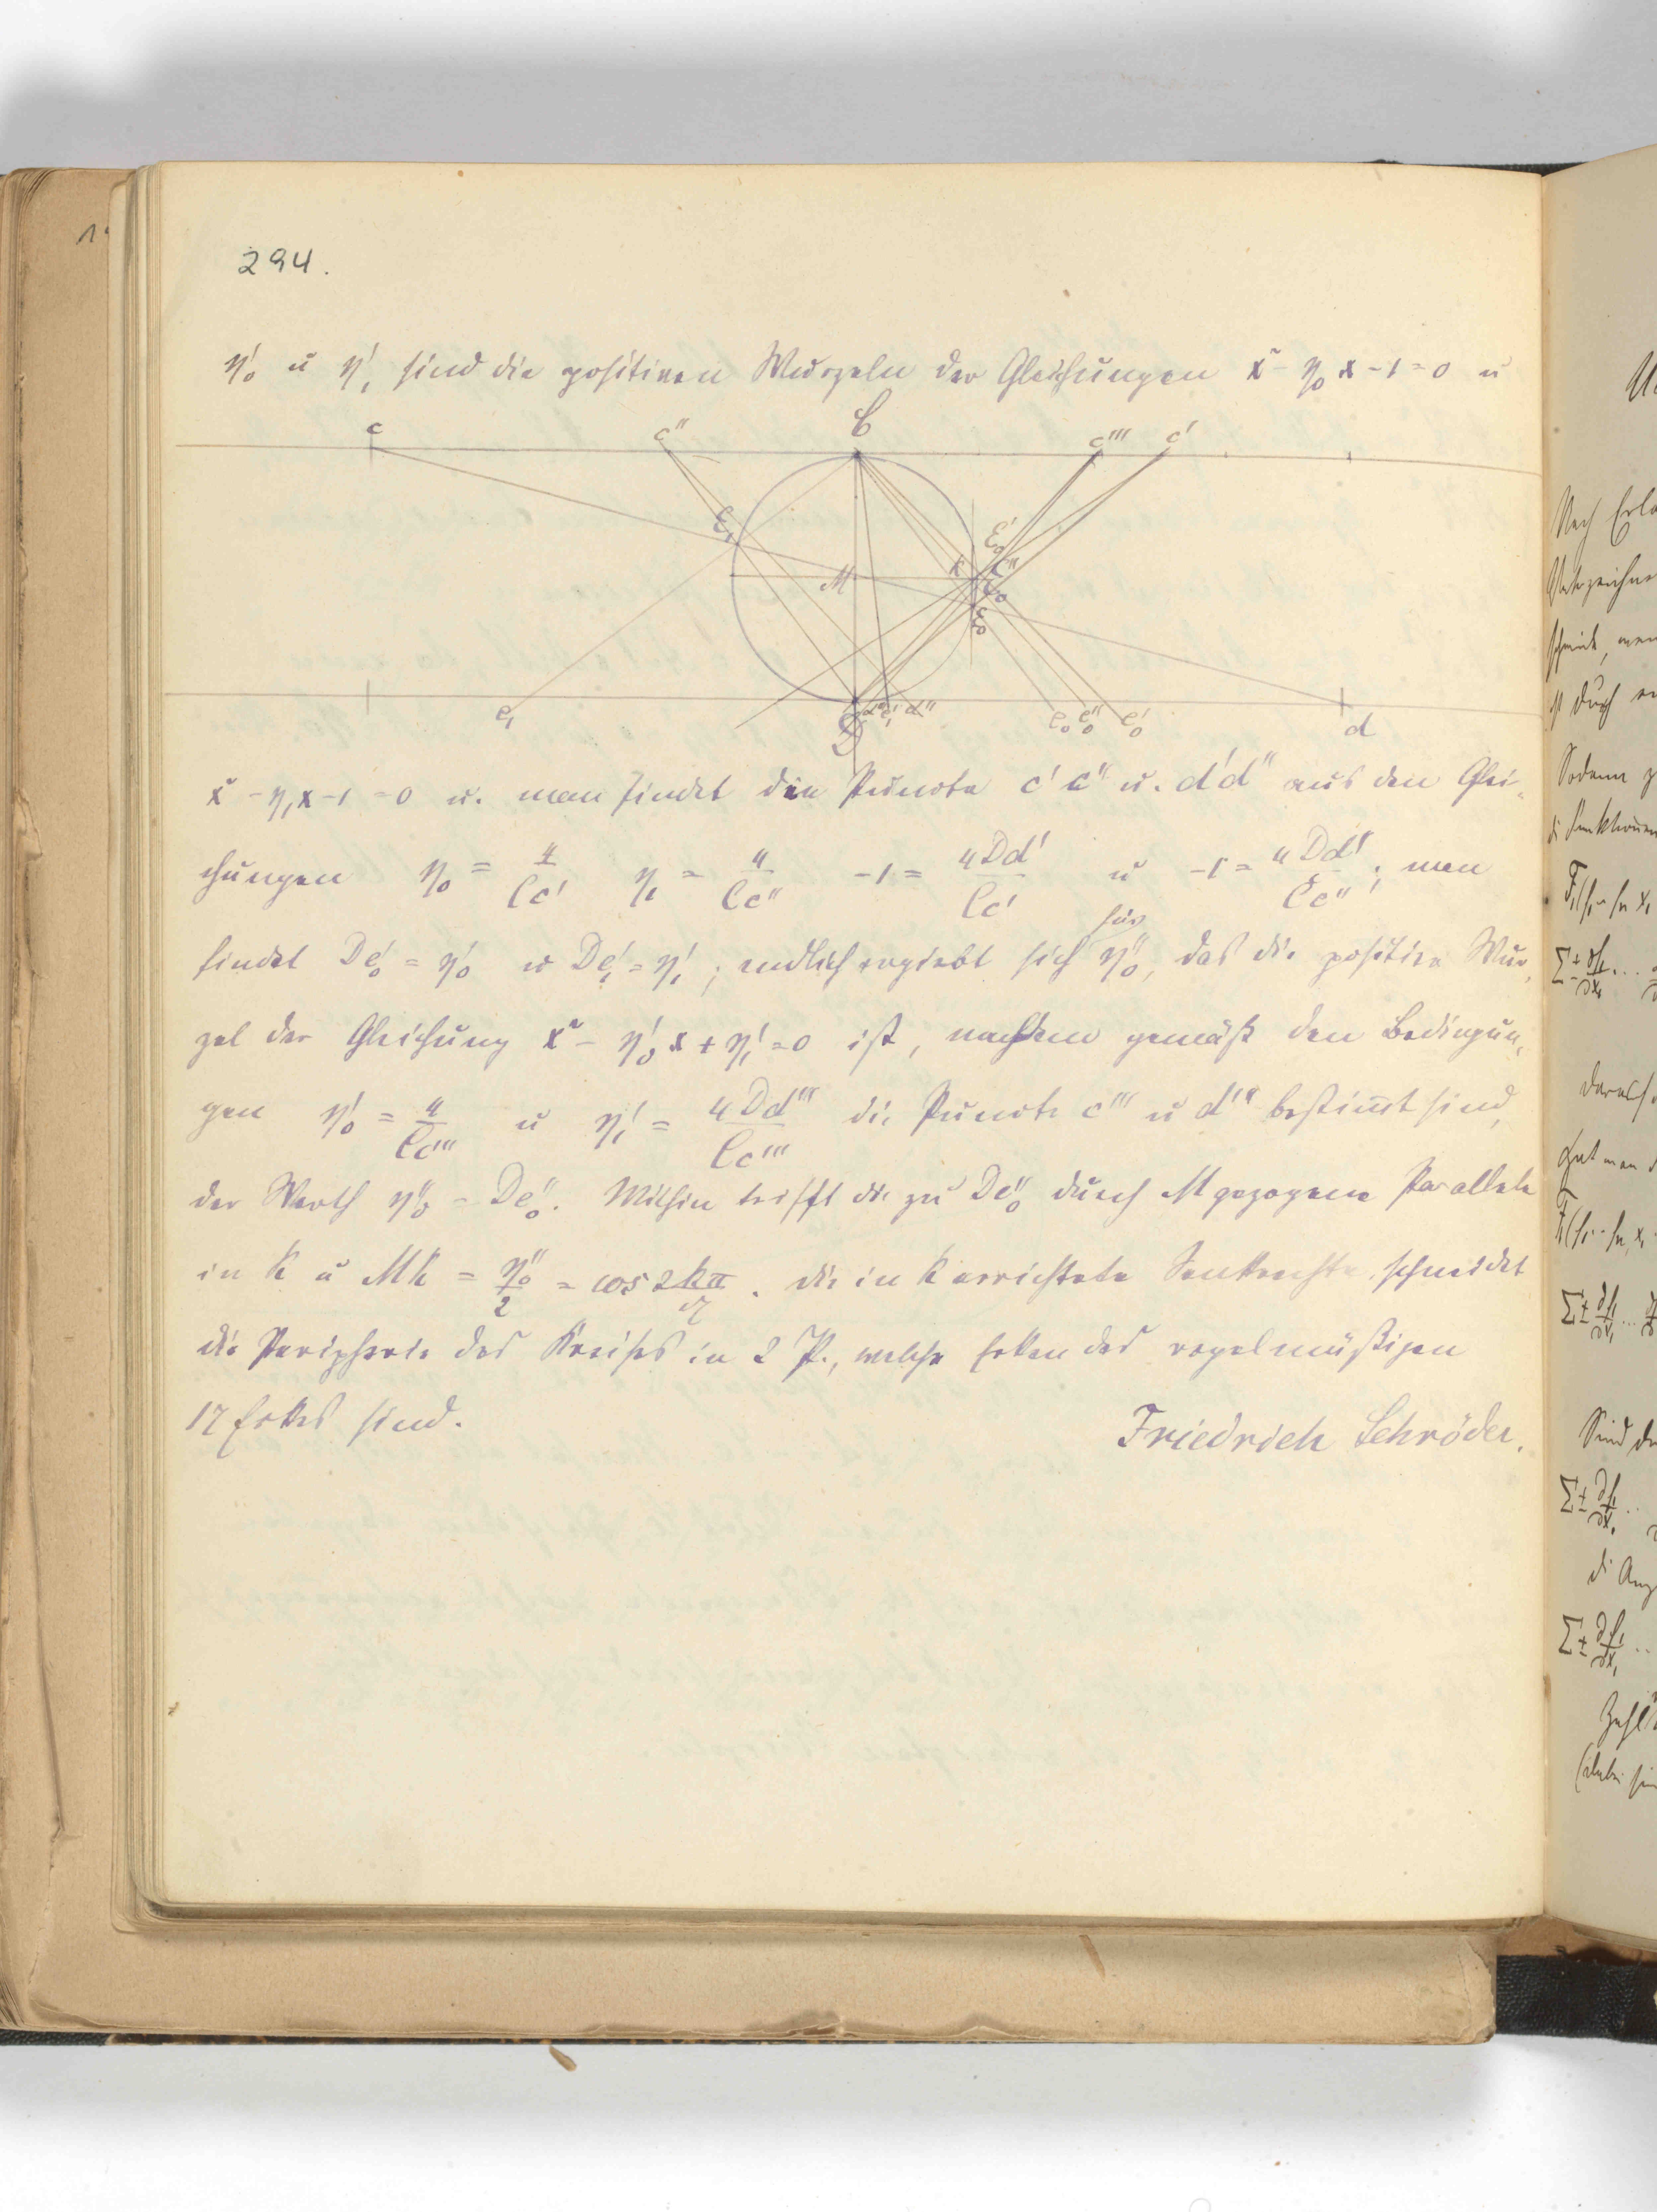 294.
η₀' u η₁' sind die positiven Wurzeln der Gleichungen x² - η₀ x - 1 = 0 u
c c'' C c''' c'
E₁ E₀' M K E₀
e₁ D d'' e₀ e₀'' e₀' d
x² - η₁x - 1 = 0 u. man findet die Puncte c' c'' u. d' d'' aus den Glei-
chungen η₀ = 4/Cc' η₁ = 4/Cc'' -1 = 4Dd'/Cc' u -1 = 4Dd''/Cc''; man
für
findet De₀' = η₀' u De₁' = η₁'; endlich ergiebt sich η₀'', das die positive Wur-
zel der Gleichung x² - η₀' x + η₁' = 0 ist, nachdem gemäß den Bedingun-
gen η₀' = 4/Cc''' u η₁' = 4Dd'''/Cc''' die Puncte c''' u d''' bestimmt sind,
der Werth η₀'' = De₀''. Mithin trifft die zu De₀'' durch M gezogene Parallele
in K u MK = η₀''/2 = cos 2kπ/17. die in K errichtete Senkrechte schneidet
die Peripherie des Kreises in 2 P., welche Ecken des regelmäßigen
17 Ecks sind. Friedrich Schröder.
Nach
Sodann
daraus
hat man
Sind